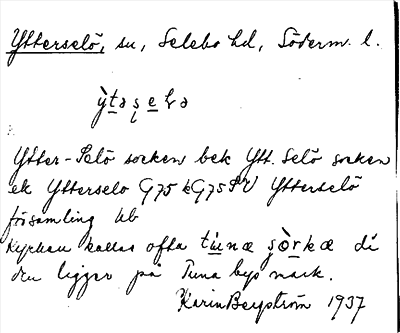 Ytterselö, sn, Selebo hd, Söderm. l.
Ytter-Selö socken bek Ytt. Selö socken
ek Ytterselo G75 kG75SV Ytterselö
församling kb
Kyrkan kallas ofta tùnæ sòrkæ di
den ligger på Tuna bys mark.
Karin Bergström 1937